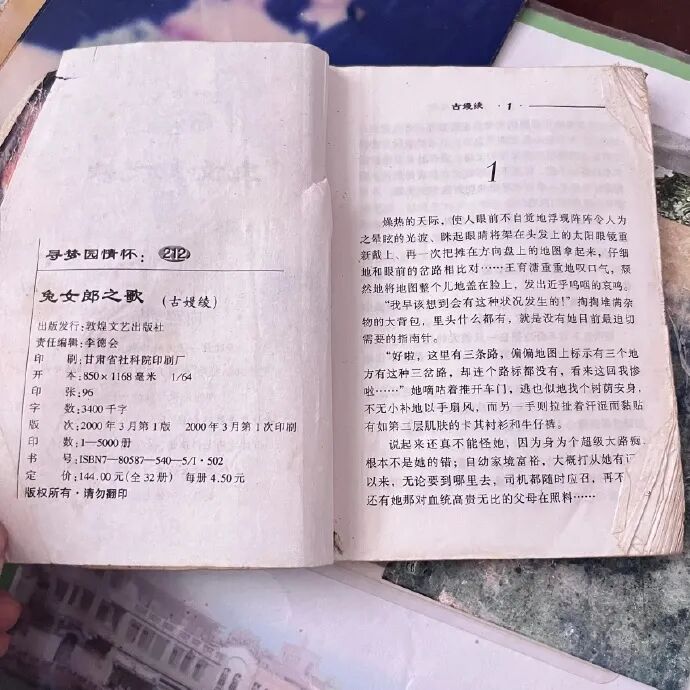 寻梦园情怀：212
兔女郎之歌（古嫚绫）
出版发行：敦煌文艺出版社
责任编辑：李德会
印　　刷：甘肃省社科院印刷厂
开　　本：850×1168毫米　1/64
印　　张：96
字　　数：3400千字
版　　次：2000年3月第1版　2000年3月第1次印刷
印　　数：1—5000册
书　　号：ISBN7—80587—540—5/I·502
定　　价：144.00元（全32册）　每册4.50元
版权所有·请勿翻印
古嫚绫　·1
1
燥热的天际，使人眼前不自觉地浮现阵阵令人为
之晕眩的光波、眯起眼睛将架在头发上的太阳眼镜重
新戴上、再一次把摊在方向盘上的地图拿起来，仔细
地和眼前的岔路相比对……王育溏重重地叹口气，颓
然地将地图整个儿地盖在脸上，发出近乎呜咽的哀鸣。
“我早该想到会有这种状况发生的！”掏掏堆满杂
物的大背包，里头什么都有，就是没有她目前最迫切
需要的指南针。
“好啦，这里有三条路，偏偏地图上标示有三个地
方有这种三岔路，却连个路标都没有，看来这回我惨
啦……”她嘀咕着推开车门，逃也似地找个树荫安身，
不无小补地以手扇风，而另一手则拉扯着汗湿而黏贴
有如第二层肌肤的卡其衬衫和牛仔裤。
说起来还真不能怪她，因为身为个超级大路痴
根本不是她的错；自幼家境富裕，大概打从她有
以来，无论要到哪里去，司机都随时应召，再不
还有她那对血统高贵无比的父母在照料……